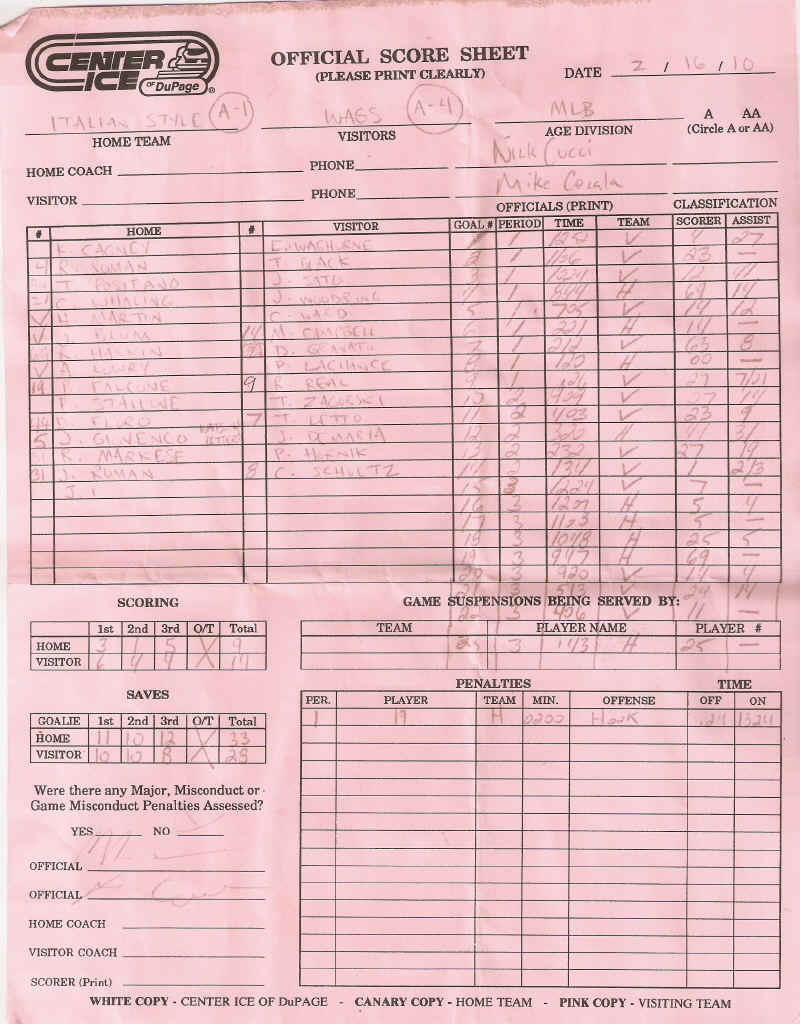 CENTER ICE OF DuPAGE ®
OFFICIAL SCORE SHEET
(PLEASE PRINT CLEARLY)
DATE 2 / 16 / 10
ITALIAN STYLE (A-1) WAGS (A-4) MLB A AA
HOME TEAM VISITORS AGE DIVISION (Circle A or AA)
HOME COACH PHONE Nick Cucci
VISITOR PHONE Mike
OFFICIALS (PRINT) CLASSIFICATION
# HOME # VISITOR GOAL # PERIOD TIME TEAM SCORER ASSIST
K. CAGNEY E. WASHURNE 1 1 V 4 27
4 R. ROMAN T. BLACK 2 1 V 23 —
T. POSITANO J. SATO 3 1 1324 V 12 41
21 C. WHALING J. WOODRING 4 1 444 H 69 14
V H. MARTIN C. WARD 5 1 705 V 14 12
V J. BLUM 14 M. CAMPBELL 6 1 221 H 14 —
R. HASKIN D. 7 1 212 V 63 8
V A. LOWRY P. LACHANCE 8 1 120 H 00 —
19 P. FALCONE 9 R. REAL 9 1 V 27 7/21
F. STALLONE T. ZAGORSKI 10 2 929 V 27 44
D. FLORO 7 T. LETTO 11 2 403 V 23 9
5 J. GIOVENCO J. DEMARIA 12 2 320 H 41 31
R. MARKESE P. HORNIK 13 2 232 V 27 19
31 J. ROMAN 8 C. SCHULTZ 14 2 134 V 1 2/3
J. 15 3 1224 V 7 —
16 3 1207 H 5 4
17 3 1123 H 5 —
18 3 1048 H 25 5
19 3 947 H 69 —
20 3 920 V 14 4
21 3 513 V 24 14
SCORING GAME SUSPENSIONS BEING SERVED BY:
22 3 456 V 11 —
1st 2nd 3rd O/T Total TEAM PLAYER NAME PLAYER #
HOME 3 1 5 X 9 23 3 113 H 25 —
VISITOR 6 4 4 X 14
SAVES PENALTIES TIME
GOALIE 1st 2nd 3rd O/T Total PER. PLAYER TEAM MIN. OFFENSE OFF ON
HOME 11 10 12 X 33 1 19 H 0200 Hook 1324
VISITOR 10 10 8 X 28
Were there any Major, Misconduct or
Game Misconduct Penalties Assessed?
YES NO
OFFICIAL
OFFICIAL
HOME COACH
VISITOR COACH
SCORER (Print)
WHITE COPY - CENTER ICE OF DuPAGE - CANARY COPY - HOME TEAM - PINK COPY - VISITING TEAM